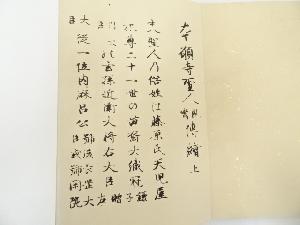 本願寺聖人親鸞傳繪 上
夫聖人乃俗姓は藤原氏天児屋
根尊二十一世の苗裔大織冠鎌子
内大臣の玄孫近衛大将右大臣贈左
大臣従一位内麻呂公號後長岡大
臣或號閑院